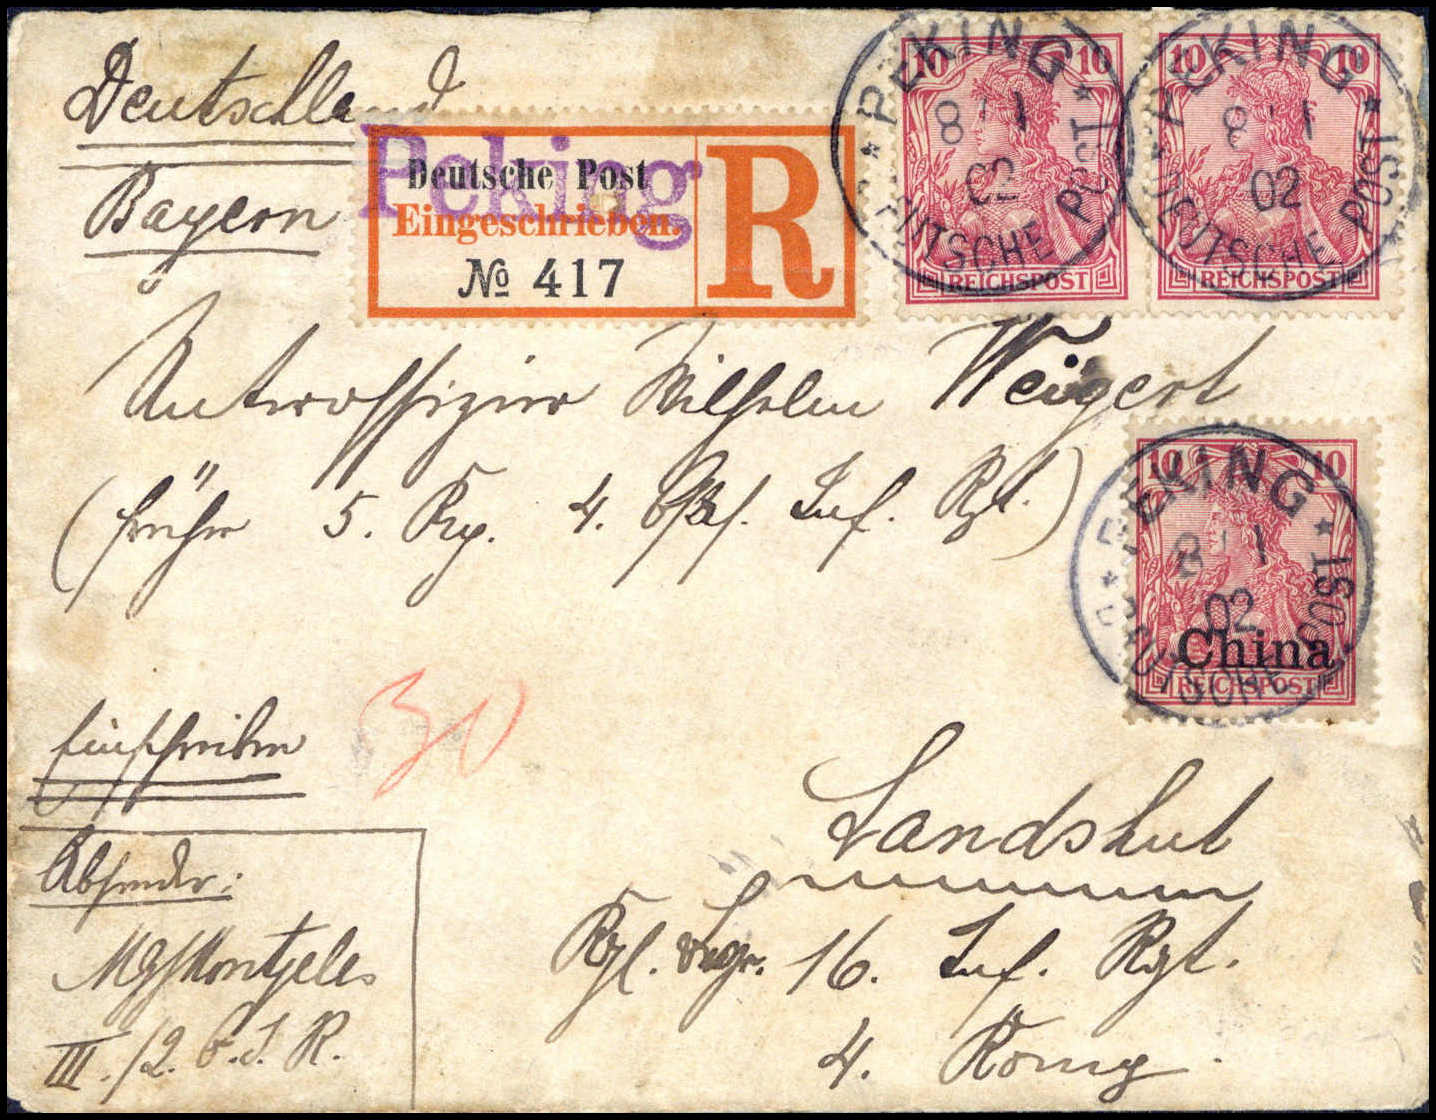 Deutschland
Bayern
Peking
Deutsche Post
Eingeschrieben.
R
№ 417
10 10
REICHSPOST
PEKING
8 1
02
DEUTSCHE POST
10 10
REICHSPOST
PEKING
8 1
02
DEUTSCHE POST
Unteroffizier Wilhelm Weigert
(früher 5. Kp. 4. Inf. Rgt.)
10 10
China
REICHSPOST
PEKING
8 1
02
DEUTSCHE POST
Einschreiben
30
Landshut
Kgl. bayr. 16. Inf. Rgt.
4. Komp.
Absender:
Montgelas
III./2. O.I.R.